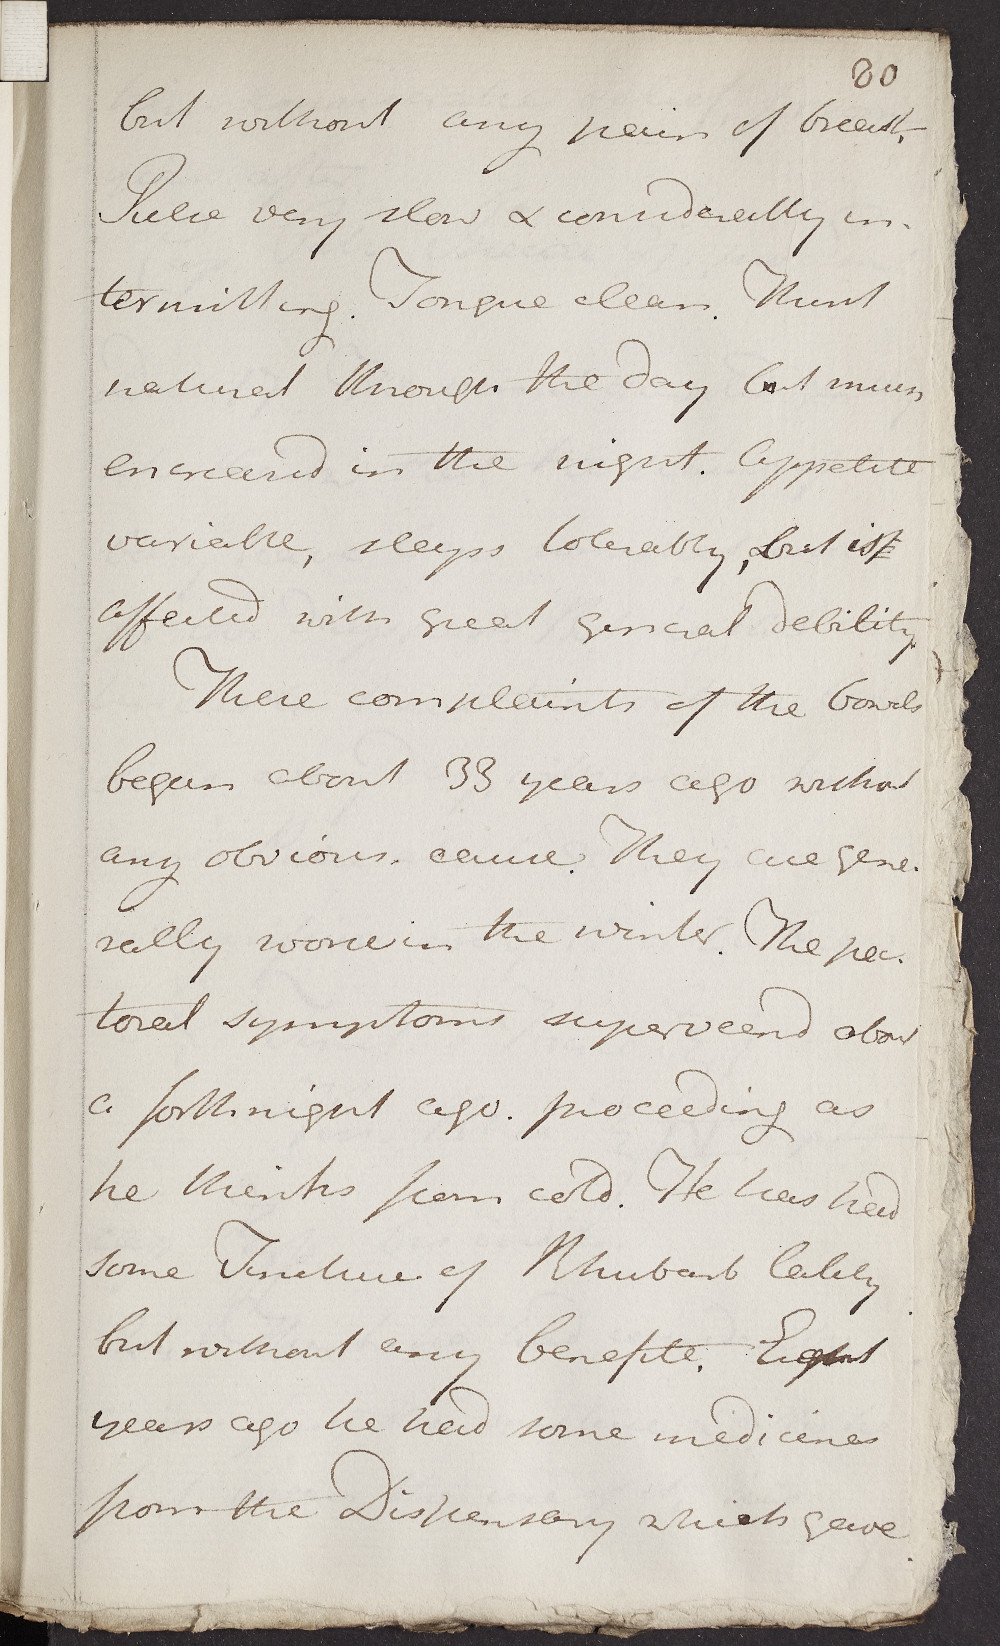 80
but without any pain of breast,
Pulse very slow & considerably in-
termitting. Tongue clean. Thirst
natural through the day but much
encreased in the night. Appetite
variable, sleeps tolerably, but is
affected with great general debility
These complaints of the bowels
began about 33 years ago without
any obvious cause. They are gene-
rally worse in the winter. The pec-
toral symptoms supervened about
a forthnight ago. proceeding as
he thinks from cold. He has had
some Tincture of Rhubarb lately
but without any benefite. Eight
years ago he had some medicines
from the Dispensary which gave